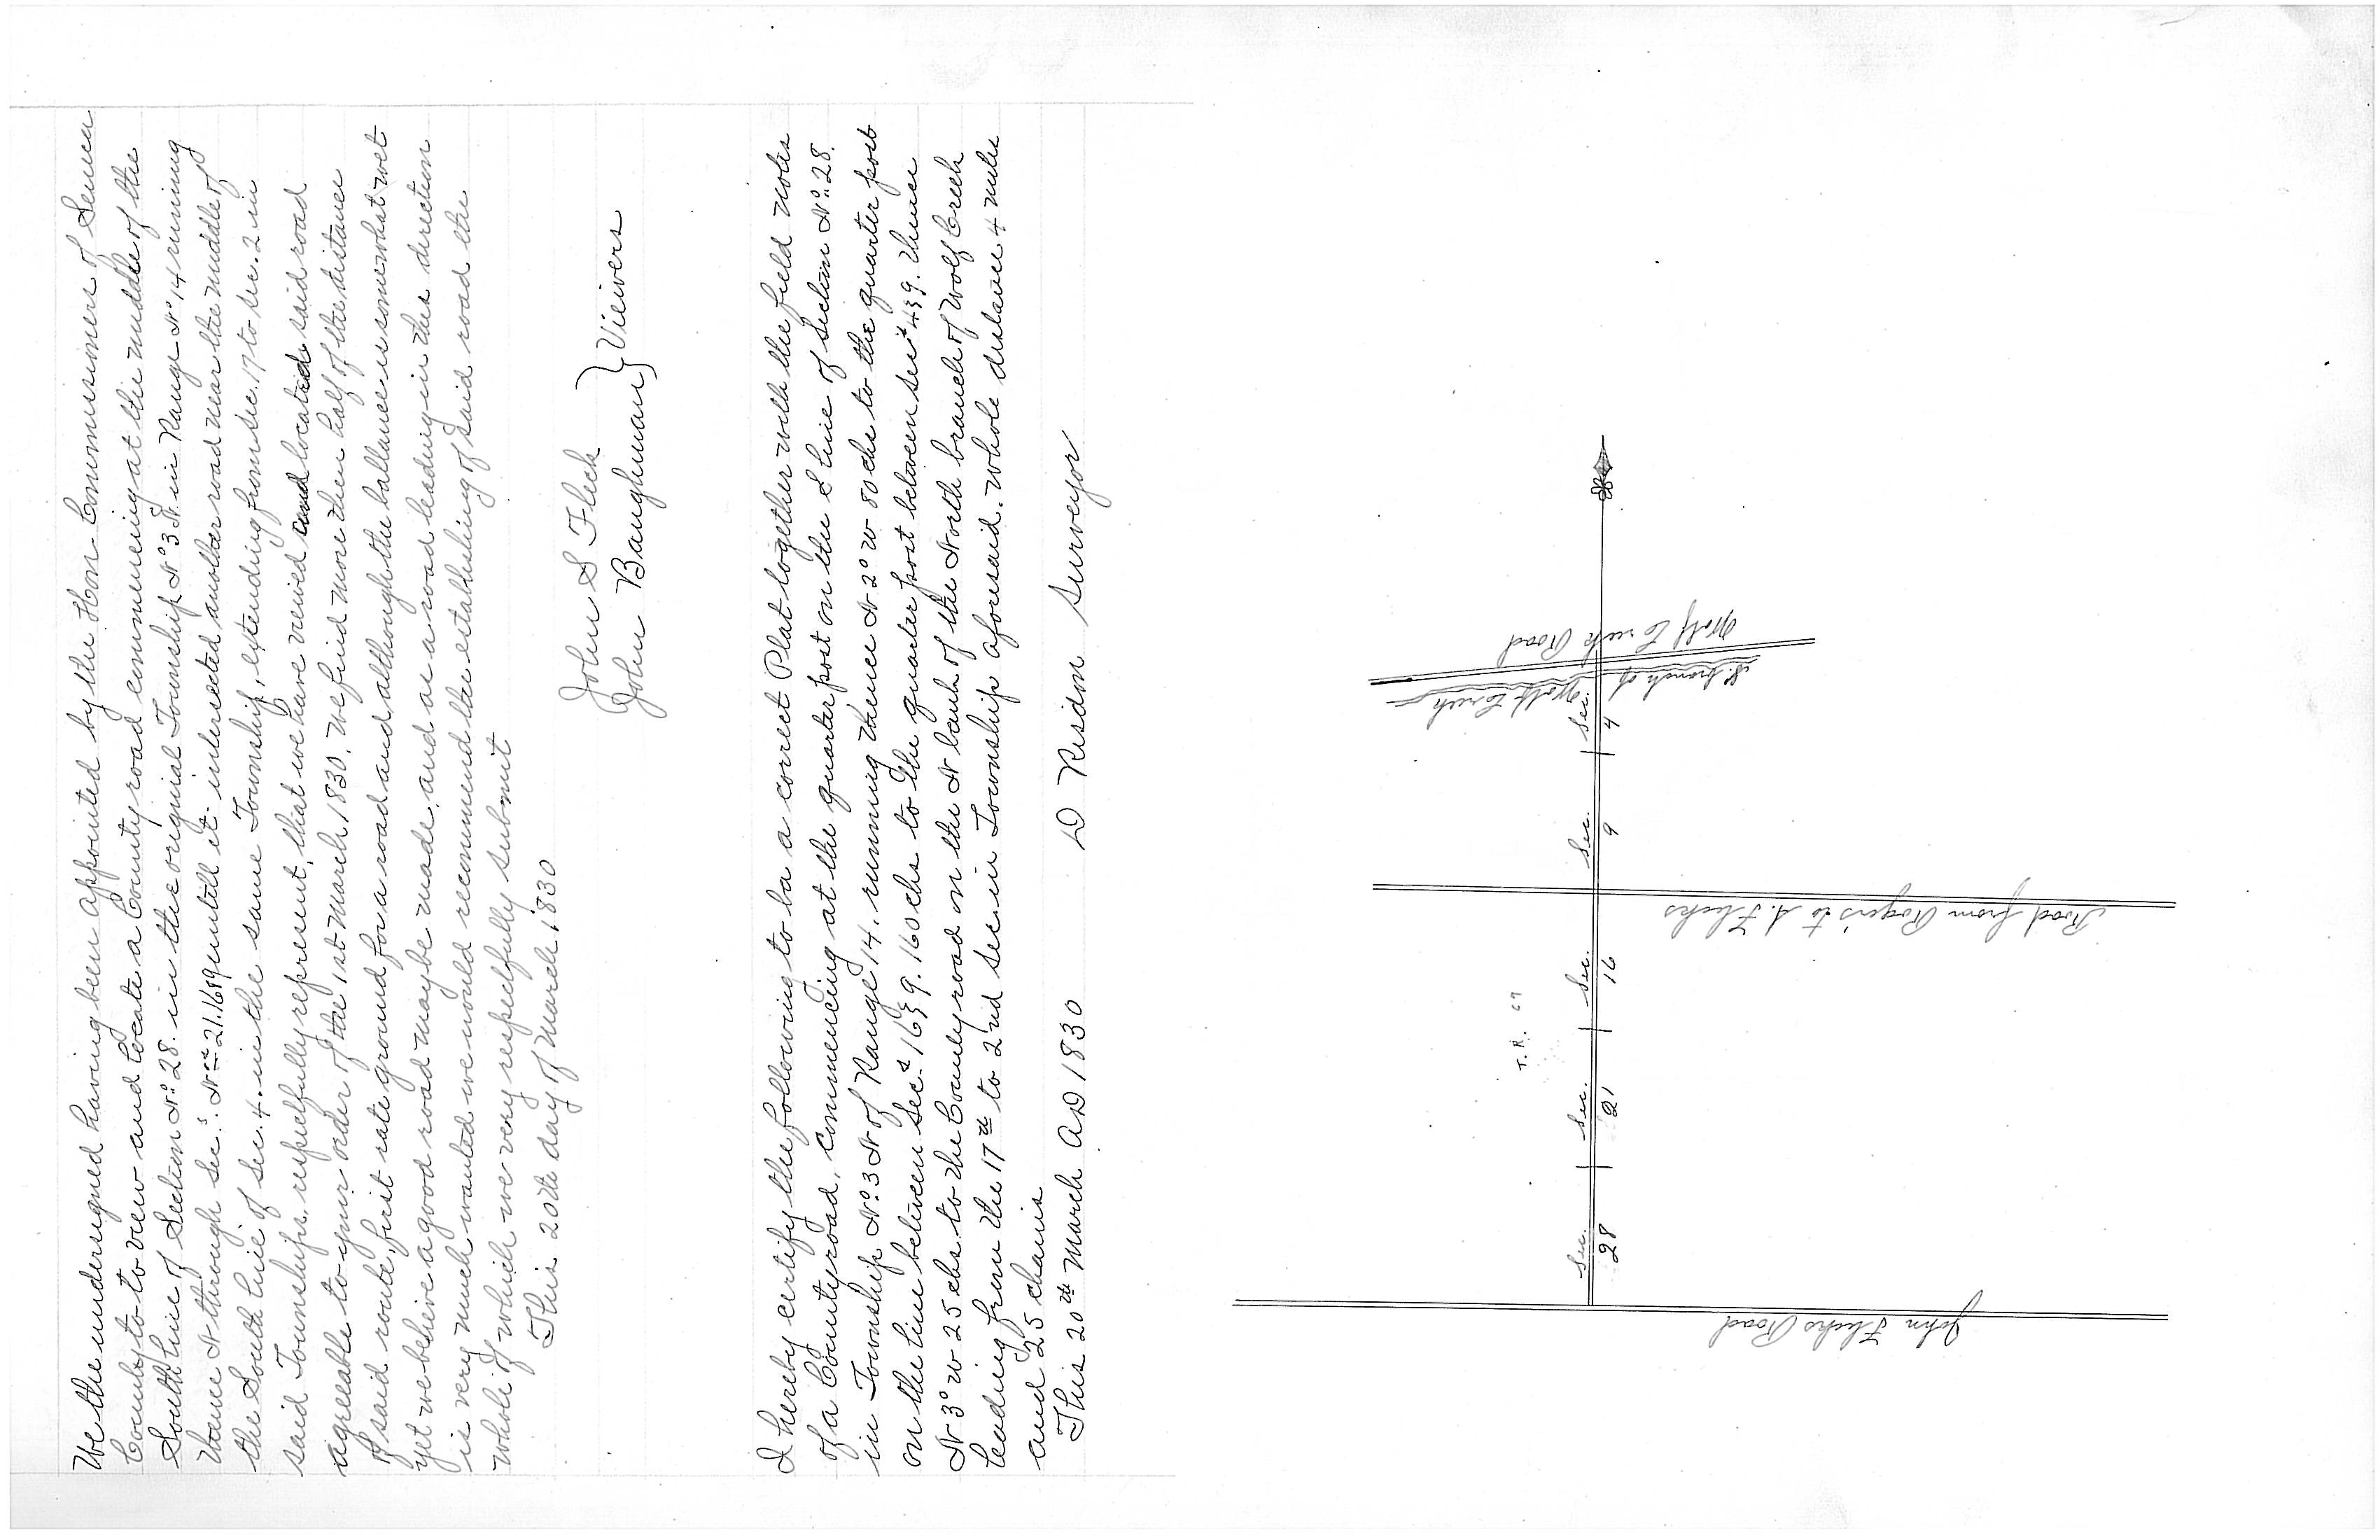 We the undersigned having been appointed by the Hon. Commissioners of Seneca
County to to view and locate a County road commencing at the middle of the
South line of Section No. 28. in the original Township No 3 N. in Range No 14 running
thence N through Sec.s Nos 21. 16 9 untill it intersected another road near the middle of
the South line of Sec. 4. in the same Township, extending from sec. 17 to sec. 2 in
said Township, respectfully represent, that we have viewed and located said road
agreeable to your order of the 1st March, 1830. We find more then half of the distance
of said route, first rate ground for a road and although the ballance is somewhat wet
yet we believe a good road may be made, and as a road leading in this direction
is very much wanted we would recommend the establishing of said road the
whole of which we very respectfully submit
This 20th day of March, 1830
John S Fleck
John Baughman } Viewers
I hereby certify the following to ba a correct Plat together with the field notes
of a County road, Commencing at the quarter post on the S line of Section No. 28.
in Township No. 3 N of Range 14. running thence N 2° W 80 chs to the quarter post
on the line between Sec.s 16 & 9. 160 chs to the quarter post between secs 4 & 9. thence
N 3° W 25 chs. to the County road on the N bank of the North branch of Wolf Creek
leading from the 17th to 2nd sec. in Township aforesaid. whole distance 4 miles
and 25 chains
This 20th March AD 1830 D Risdon Surveyor
Wolf Creek Road
N. branch of Wolf Creek
Sec. 4
Sec. 9
Road from Rogers to S. Flecks
Sec. 16
T.R.
Sec. 21
Sec. 28
John Flecks Road